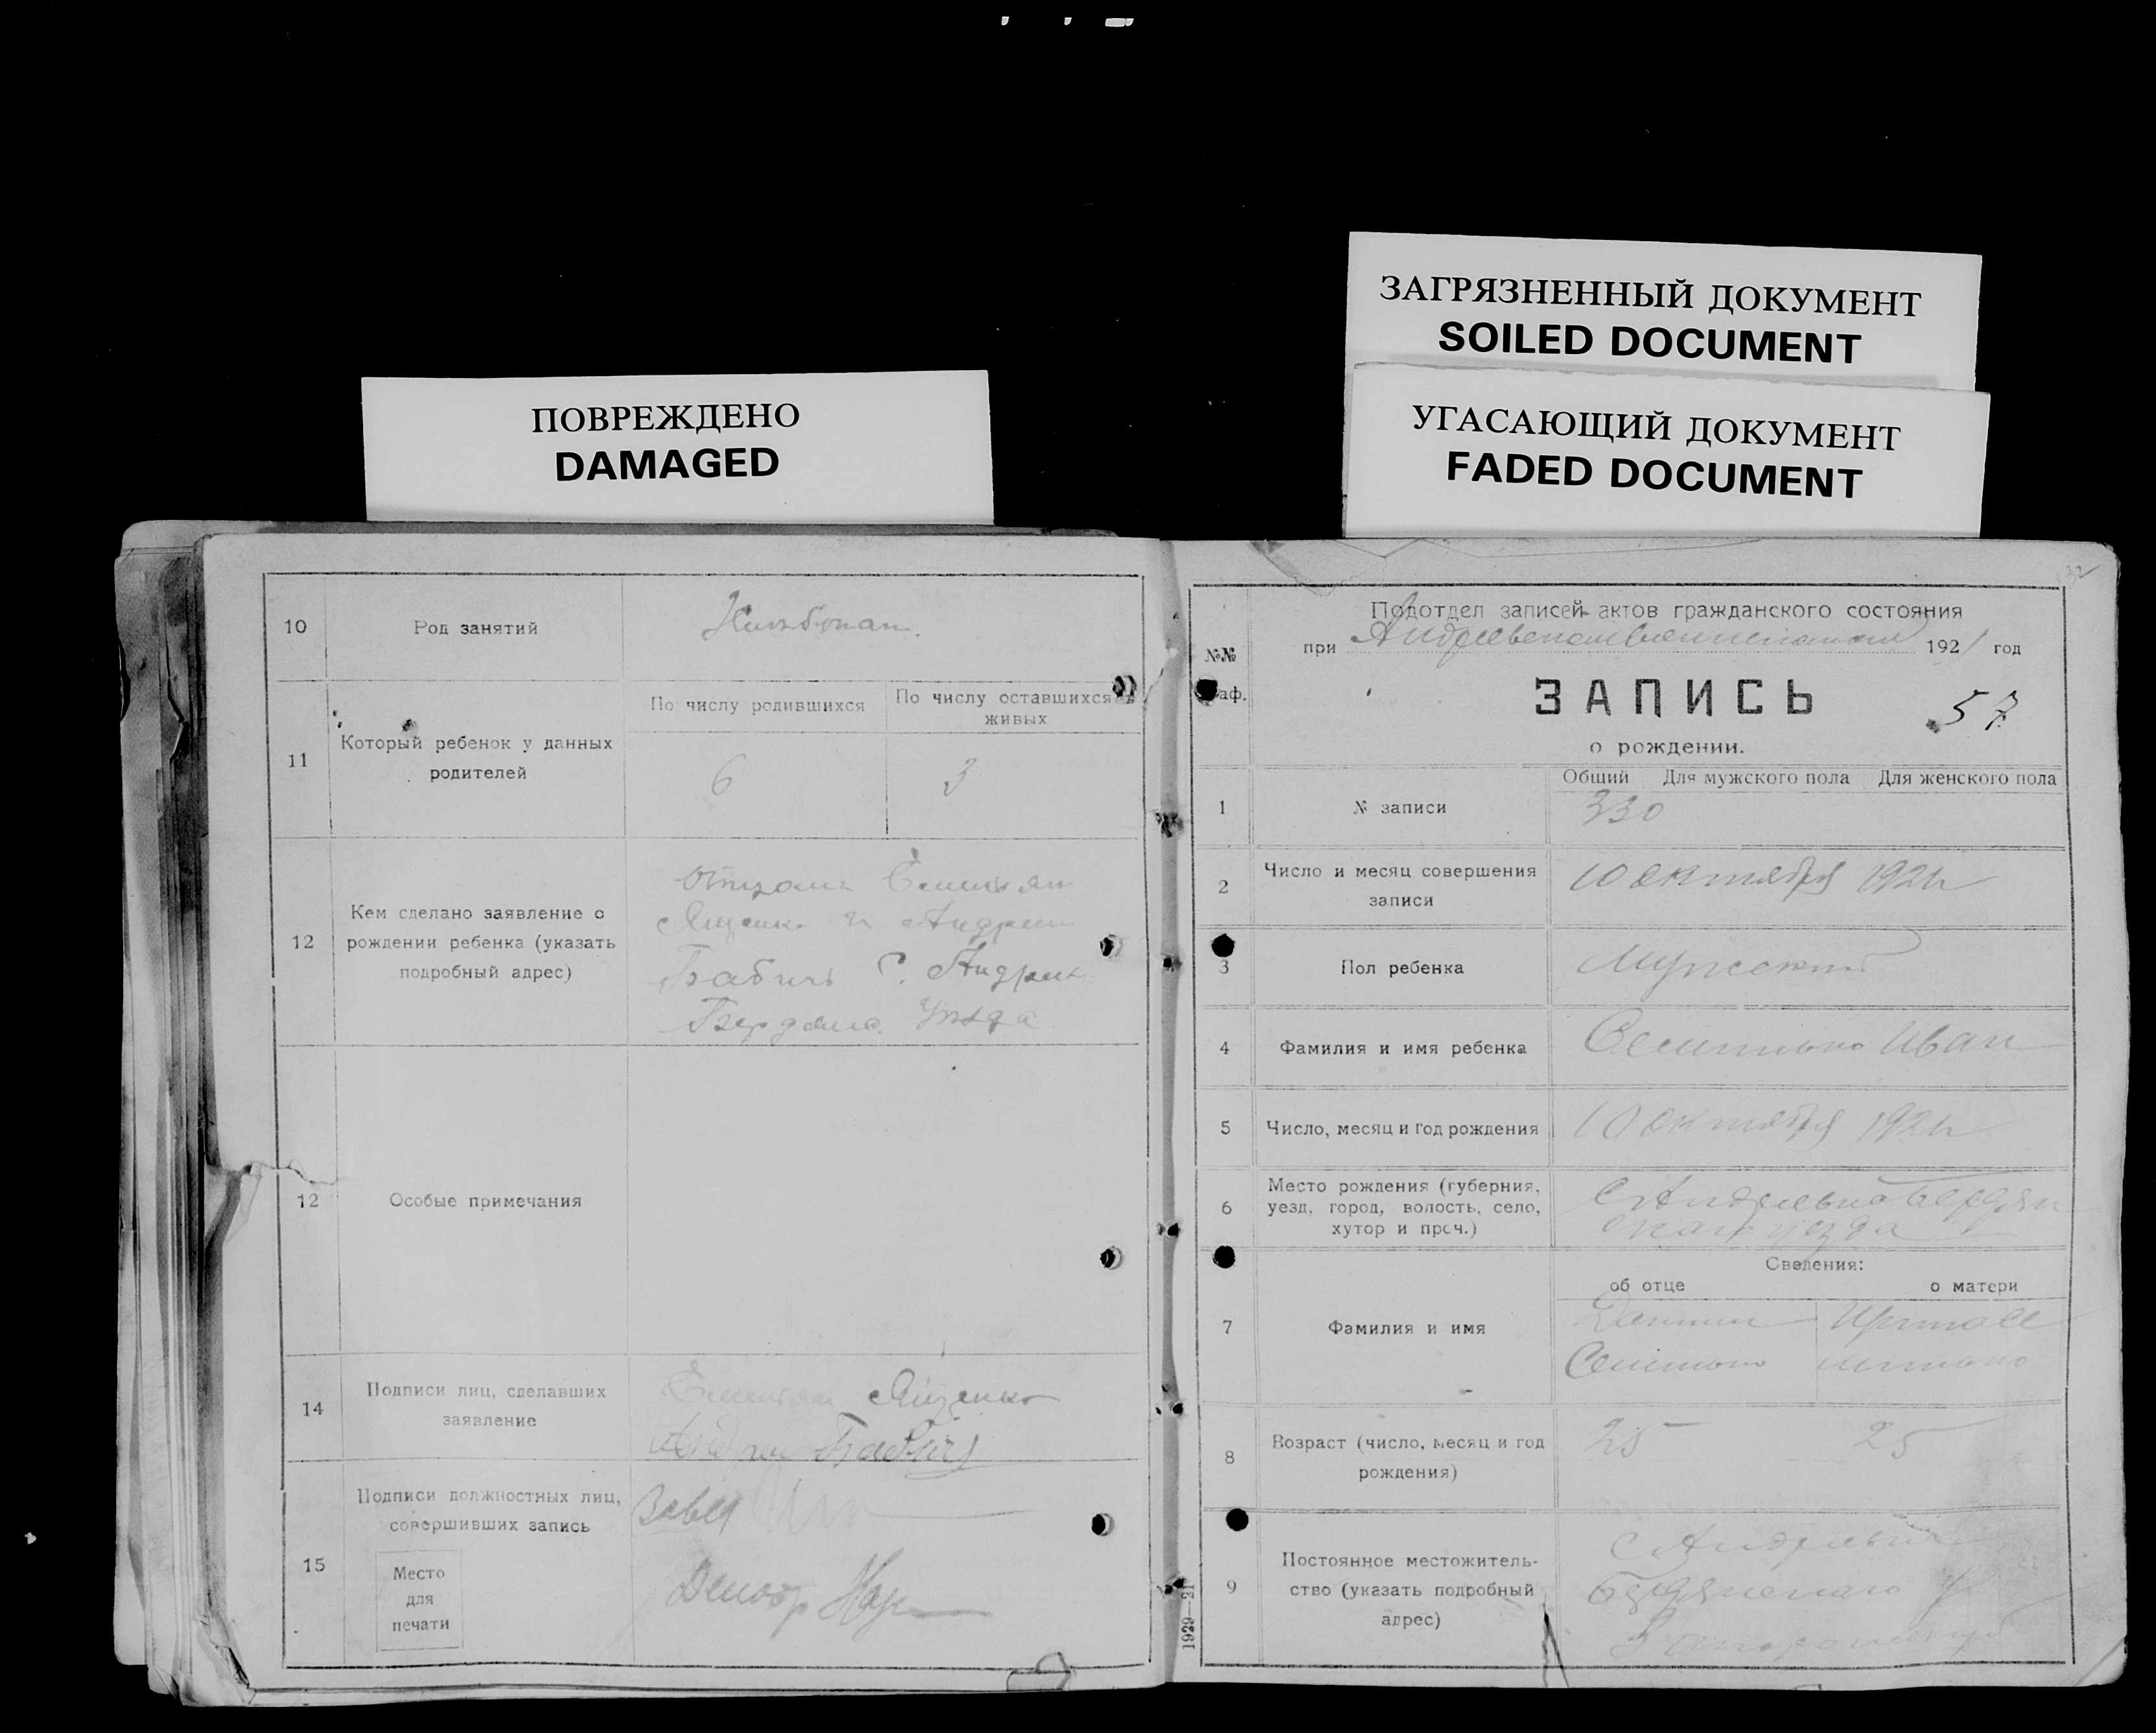 ЗАГРЯЗНЕННЫЙ ДОКУМЕНТ
SOILED DOCUMENT
УГАСАЮЩИЙ ДОКУМЕНТ
FADED DOCUMENT
ПОВРЕЖДЕНО
DAMAGED
10 Род занятий
11 Который ребенок у данных родителей
По числу родившихся
По числу оставшихся живых
6
3
12 Кем сделано заявление о
рождении ребенка (указать
подробный адрес)
Ященко и Андрей
Бабичь С. Андреев
Бердянс. Уезда
12 Особые примечания
14 Подписи лиц, сделавших
заявление
Ященко
Бабичь
15 Подписи должностных лиц,
совершивших запись
Завед
Место
для
печати
132
Подотдел записей актов гражданского состояния
при 1921 год
№№
граф.
ЗАПИСЬ
57
о рождении.
Общий Для мужского пола Для женского пола
1 № записи
330
2 Число и месяц совершения
записи
10 октября 1921
3 Пол ребенка
Мужской
4 Фамилия и имя ребенка
Иван
5 Число, месяц и год рождения
10 октября 1921
6 Место рождения (губерния,
уезд, город, волость, село,
хутор и проч.)
с Андреевка Бердян
скаго уезда
Сведения:
об отце о матери
7 Фамилия и имя
8 Возраст (число, месяц и год
рождения)
25 25
9 Постоянное местожитель-
ство (указать подробный
адрес)
с Андреевка
Бердянскаго у
1929—21